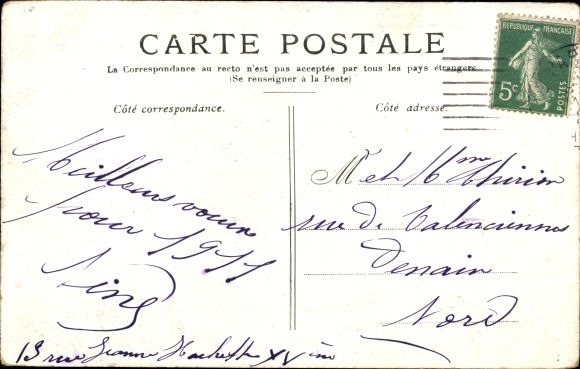 CARTE POSTALE
La Correspondance au recto n'est pas acceptée par tous les pays étrangers
(Se renseigner à la Poste)
Côté correspondance.
Côté adresse.
REPUBLIQUE FRANÇAISE
5c
POSTES
Meilleurs vœux
pour 1911
M et Mme Thirion
rue de Valenciennes
Denain
Nord
13 rue Jeanne Hachette XVème